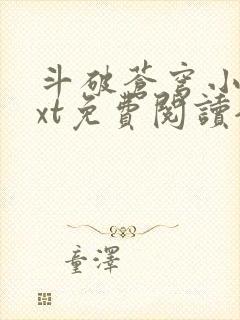 斗破苍穹小
xt免費閱讀
童澤